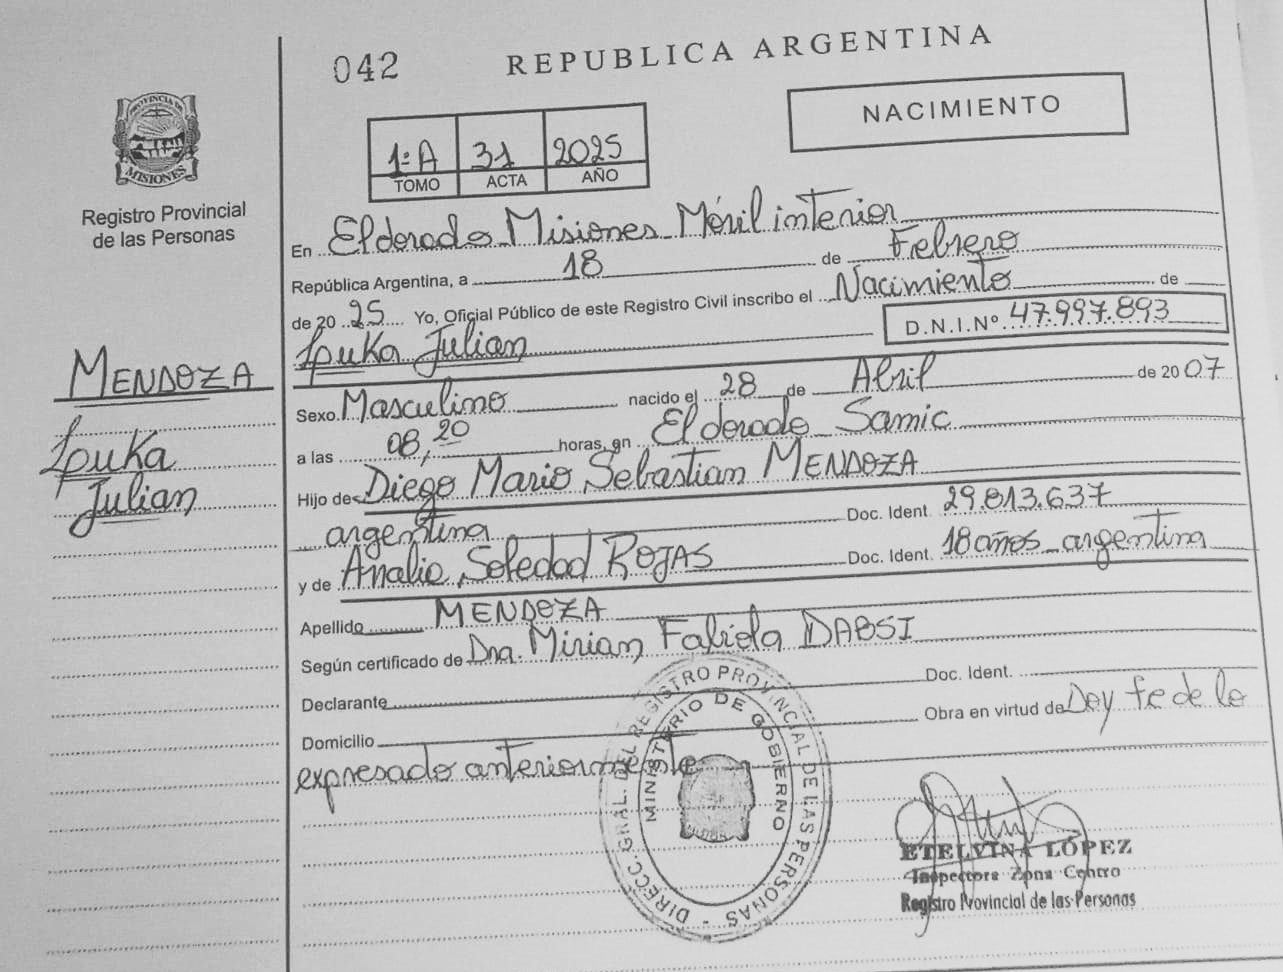 042
REPUBLICA ARGENTINA
NACIMIENTO
1ª A 31 2025
TOMO ACTA AÑO
PROVINCIA DE
MISIONES
Registro Provincial
de las Personas
En Eldorado Misiones Móvil interior
República Argentina, a 18 de Febrero
de 2025 Yo, Oficial Público de este Registro Civil inscribo el Nacimiento de
Julian D.N.I.Nº 47.997.893
MENDOZA
Julian
Sexo Masculino nacido el 28 de Abril de 2007
a las 08,20 horas, en Eldorado Samic
Hijo de Diego Mario Sebastian MENDOZA
argentina Doc. Ident. 29.813.637
y de Analia Soledad ROJAS Doc. Ident. 18 años argentina
Apellido MENDOZA
Según certificado de Dra. Mirian Fabiola DABSI
Declarante Doc. Ident.
Domicilio Obra en virtud de Doy fe de lo
expresado anteriormente
DIRECC. GRAL. DEL REGISTRO PROVINCIAL DE LAS PERSONAS -
MINISTERIO DE GOBIERNO
ETELVINA LÓPEZ
Inspectora Zona Centro
Registro Provincial de las Personas